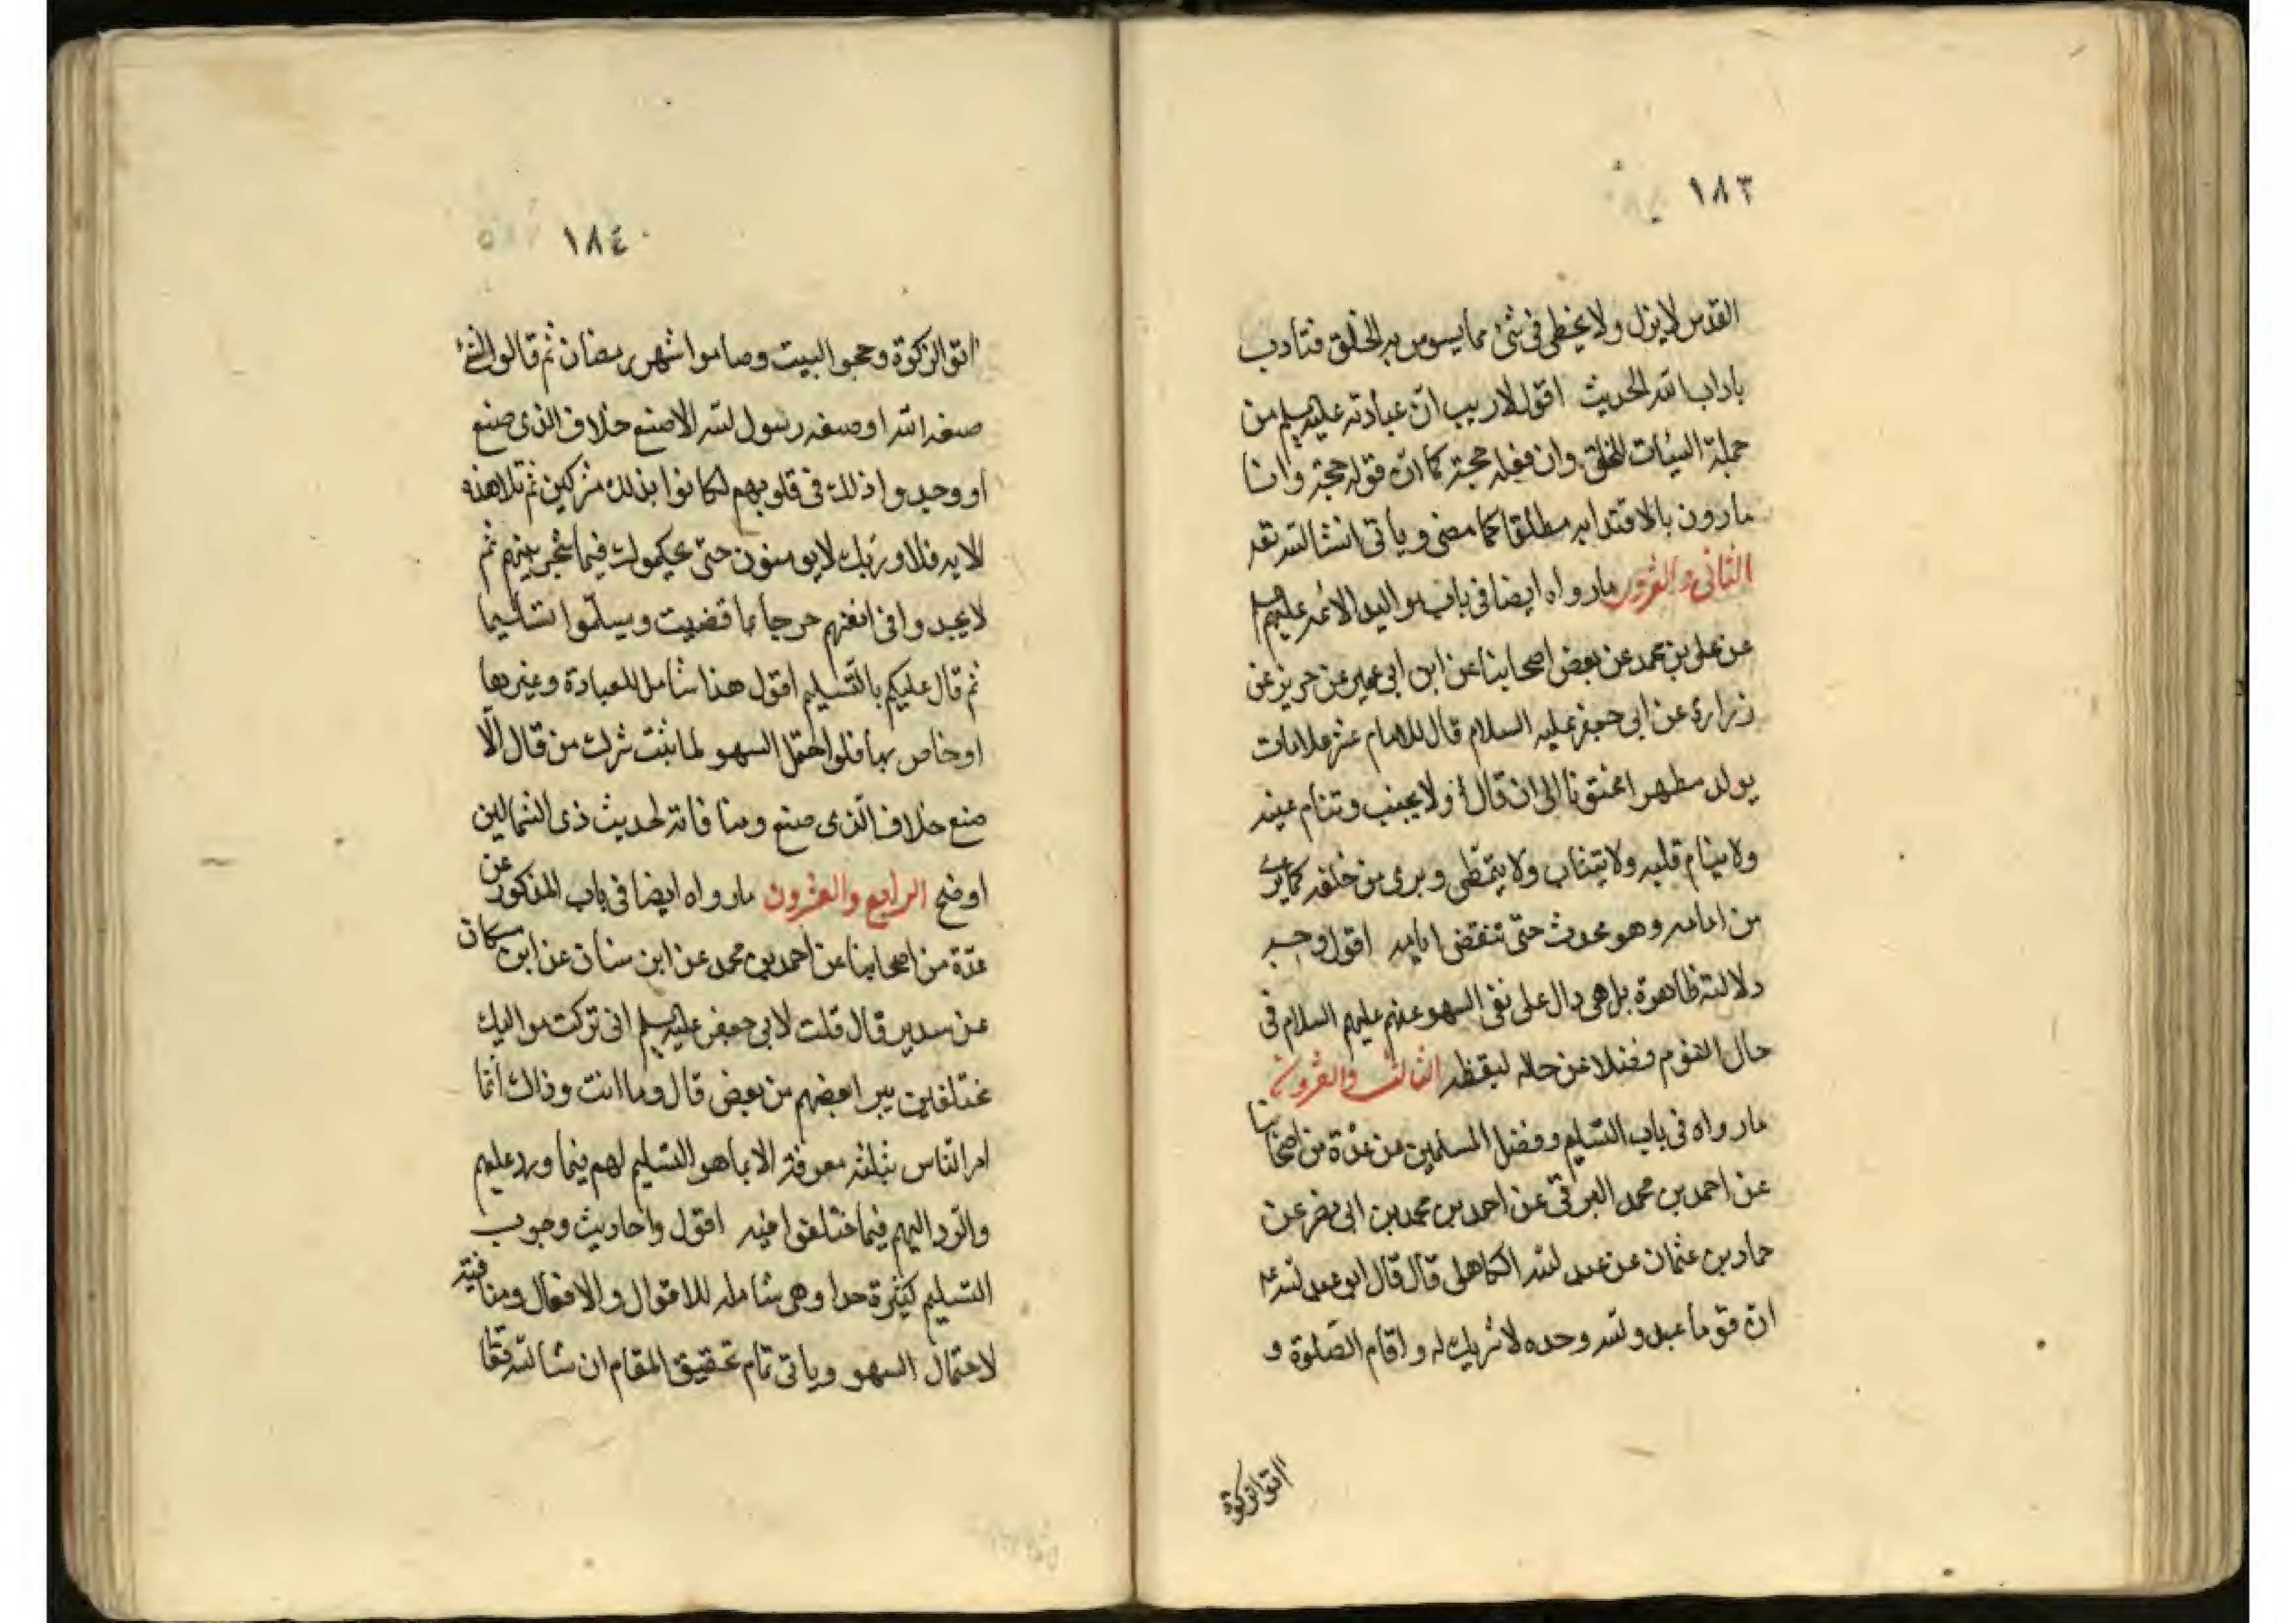 ١٨٣
القدس لا يزل ولا يخطى فى شئ مما يسوس به الخلق فتادب
باداب الله الحديث اقول لا ريب ان عبادته عليه السلم من
جملة السيات للخلق وان فعله حجة كما ان قوله حجة وانا
مارون بالاقتدا به مطلقا كما مضى وياتى انشا لله تعه
الثانى والعشرون مارواه ايضا فى باب مواليد الائمه عليهم السلم
عن على بن محمد عن بعض اصحابنا عن ابن ابى عمير عن حريز عن
زرارة عن ابى جعفر عليه السلام قال للامام عشر علامات
يولد مطهرا مختونا الى ان قال ولا يجنب وتنام عينه
ولا ينام قلبه ولا يتثاب ولا يتمطى ويرى من خلفه كما يرى
من امامه وهو محدث حتى تنقضى ايامه اقول وجه
دلالته ظاهرة بل هى دال على نفى السهو عنهم عليهم السلام فى
حال النوم وفضلا عن حاله ليقظه الثالث والعشرون
مارواه فى باب التسليم وفضل المسلمين عن عدة من اصحابنا
عن احمد بن محمد البرقى عن احمد بن محمد بن ابى نصر عن
حماد بن عثمان عن عبد لله الكاهلى قال قال ابو عبد لله ع
ان قوما عبدو لله وحده لا شريك له واقام الصلوة و
اتوا الزكوة
١٨٤
اتوا الزكوة وحجوا البيت وصاموا شهر رمضان ثم قالوا لشئ
صنعه الله او صنعه رسول لله الا صنع خلاف الذى صنع
او وجدوا ذلك فى قلوبهم لكانوا بذلك مشركين ثم تلا هذه
الايه فلا وربك لا يومنون حتى يحكموك فيما شجر بينهم ثم
لا يجدوا فى انفسهم حرجا مما قضيت ويسلموا تسليما
ثم قال عليكم بالتسليم اقول هذا شامل للعبادة وغيرها
او خاص بها فلو احتمل السهو لما ثبت شرك من قال الا
صنع خلاف الذى صنع ومنافاته لحديث ذى الشمالين
اوضح الرابع والعشرون مارواه ايضا فى باب المذكور عن
عدة من اصحابنا عن احمد بن محمد عن ابن سنان عن ابن مسكان
عن سدير قال قلت لابى جعفر عليه السلم انى تركت مواليك
مختلفين يبرا بعضهم من بعض قال وما انت وذاك انما
امر الناس بثلثه معرفة الا بما هو التسليم لهم فيما ورد عليهم
والرد اليهم فيما اختلفوا فيه اقول واحاديث وجوب
التسليم كثيرة جدا وهى شامله للاقوال والافعال ومنافيته
لاحتمال السهو وياتى تمام تحقيق المقام ان شا لله تعا